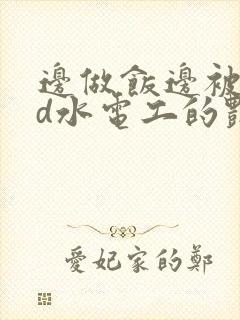 邊做飯邊被
d水電工的
愛妃家的鄭